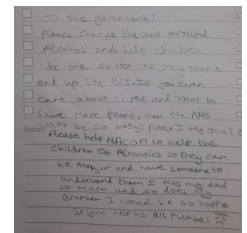 To the government!
Please change the law around
Alcohol and help children
like me so not as many people
end up like this. If you even
care about lives and want to
save more people then the NHS
wont be so busy! please I beg you!
Note: Please help NACOA to help the
Children of Alcoholics so they can
be Happyer and have someone to
understand them I miss my dad
so much and so does my
Brother I would be so happy
If you help us all Please!